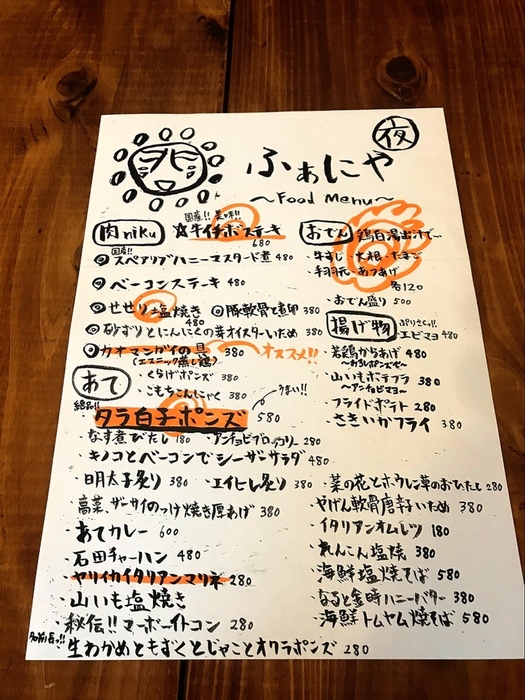 夜
ふぁにや
〜Food Menu〜
肉 niku
国産!! 美味!!
☆牛イチボステーキ
680
国産!!
◎スペアリブハニーマスタード煮 480
◎ベーコンステーキ 480
◎せせり塩焼き 480
◎豚軟骨と煮卵 380
◎砂ずりとにんにくの芽オイスターいため 380
◎カオマンガイの具 380 オススメ!!
(エスニック蒸し鶏)
あて
・くらげポンズ 380
・こもちこんにゃく 380
絶品!!
タラ白子ポンズ 580
うまい!!
・なす煮びたし 180 ・アンチョビブロッコリー 280
・キノコとベーコンでシーザサラダ 480
・明太子炙り 380 ・エイヒレ炙り 380
・高菜、ザーサイのっけ焼き厚あげ 380
・あてカレー 600
・石田チャーハン 480
・ヤリイカイタリアンマリネ 280
・山いも塩焼き
・秘伝!!マーボーイトコン 280
・生わかめともずくとじゃことオクラポンズ 280
おでん 鶏白湯出汁で…
・牛すじ・大根・たまご
・手羽元・あつあげ
各120
・おでん盛り 500
揚げ物
ぷりさくっ!!
・エビマヨ 480
・若鶏からあげ 480
〜おろしポンズで〜
・山いもポテフラ 380
〜アンチョビマヨ〜
・フライドポテト 280
・さきいかフライ 380
・菜の花とホウレン草のおひたし 280
・やげん軟骨唐辛子いため 380
・イタリアンオムレツ 180
・れんこん塩焼 380
・海鮮塩焼そば 580
・なると金時ハニーバター 380
・海鮮トムヤム焼そば 580